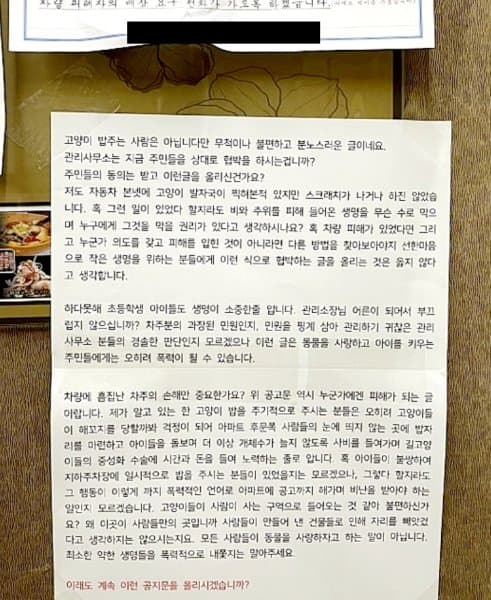 차량 피해자의 배상 요구 전화가 가도록 하겠습니다.
고양이 밥주는 사람은 아닙니다만 무척이나 불편하고 분노스러운 글이네요.
관리사무소는 지금 주민들을 상대로 협박을 하시는겁니까?
주민들의 동의는 받고 이런글을 올리신건가요?
저도 자동차 본넷에 고양이 발자국이 찍혀본적 있지만 스크래치가 나거나 하진 않았습
니다. 혹 그런 일이 있었다 할지라도 비와 추위를 피해 들어온 생명을 무슨 수로 막으
며 누구에게 그것을 막을 권리가 있다고 생각하시나요? 혹 차량 피해가 있었다면 그리
고 누군가 의도를 갖고 피해를 입힌 것이 아니라면 다른 방법을 찾아보아야지 선한마음
으로 작은 생명을 위하는 분들에게 이런 식으로 협박하는 글을 올리는 것은 옳지 않다
고 생각합니다.
하다못해 초등학생 아이들도 생명이 소중한줄 압니다. 관리소장님 어른이 되어서 부끄
럽지 않으십니까? 차주분의 과장된 민원인지, 민원을 핑계 삼아 관리하기 귀찮은 관리
사무소 분들의 경솔한 판단인지 모르겠으나 이런 글은 동물을 사랑하고 아이를 키우는
주민들에게는 오히려 폭력이 될 수 있습니다.
차량에 흠집난 차주의 손해만 중요한가요? 위 공고문 역시 누군가에겐 피해가 되는 글
이랍니다. 제가 알고 있는 한 고양이 밥을 주기적으로 주시는 분들은 오히려 고양이들
이 해꼬지를 당할까봐 걱정이 되어 아파트 후문쪽 사람들의 눈에 띄지 않는 곳에 밥자
리를 마련하고 아이들을 돌보며 더 이상 개체수가 늘지 않도록 사비를 들여가며 길고양
이들의 중성화 수술에 시간과 돈을 들여 노력하는 줄로 압니다. 혹 아이들이 불쌍하여
지하주차장에 일시적으로 밥을 주시는 분들이 있었을지는 모르겠으나, 그렇다 할지라도
그 행동이 이렇게 까지 폭력적인 언어로 아파트에 공고까지 해가며 비난을 받아야 하는
일인지 모르겠습니다. 고양이들이 사람이 사는 구역으로 들어오는 것 같아 불편하신가
요? 왜 이곳이 사람들만의 곳입니까 사람들이 만들어 낸 건물들로 인해 자리를 빼앗겼
다고 생각하지는 않으시는지요. 모든 사람들이 동물을 사랑하자고 하는 말이 아닙니다.
최소한 약한 생명들을 폭력적으로 내쫓지는 말아주세요.
이래도 계속 이런 공지문을 올리시겠습니까?